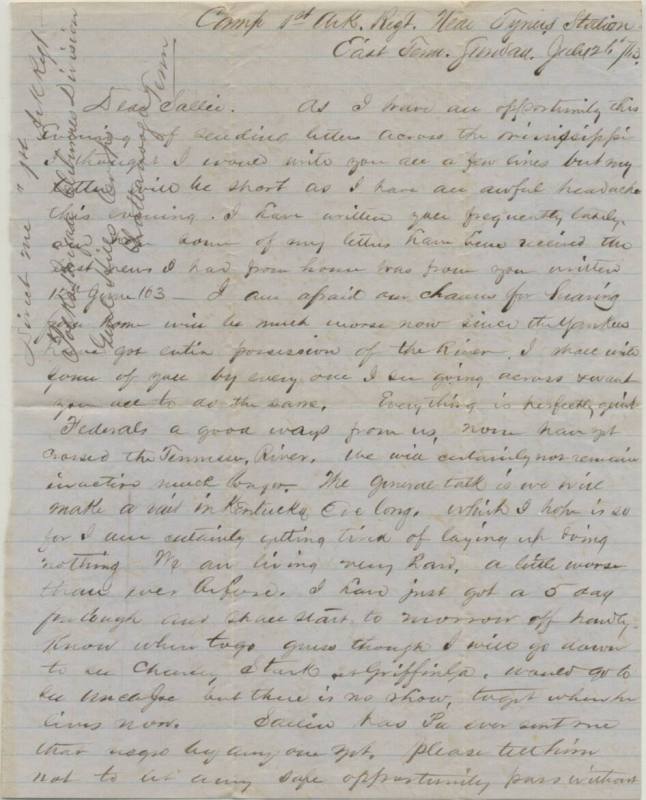 Camp 1st Ark. Regt. Near Tyners Station
East Tenn. Sunday. July 26th /63.
Dear Sallie. As I have an opportunity this
evening of sending letters across the Mississippi
I thought I would write you all a few lines but my
letter will be short as I have an awful headache
this evening. I have written you frequently lately.
some of my letters have been received the
last news I had from home was from you written
15th June /63 — I am afraid our chances for hearing
from home will be much worse now since the Yankees
have got entire possession of the River. I shall write
some of you by every one I see going across & want
you all to do the same. Everything is perfectly quiet
Federals a good ways from us, none have yet
crossed the Tennessee River. We will certainly not remain
inactive much longer. The general talk is we will
make a visit in Kentucky Ere long. which I hope is so
for I am certainly getting tired of laying up doing
nothing We are living very hard, a little worse
than ever before. I have just got a 5 day
furlough and shall start to morrow off hardly
know where to go guess though I will go down
to see Charley Stark at Griffin Ga. would go to
see Uncle Joe but there is no show, to get where he
lives now. Sallie has Pa ever sent me
that negro by any one yet. please tell him
not to let any safe opportunity pass without
Direct me "1st Ark Regt
Polk's Brigade Cleburnes Division
Genl Hills Corps
Chattanooga Tenn